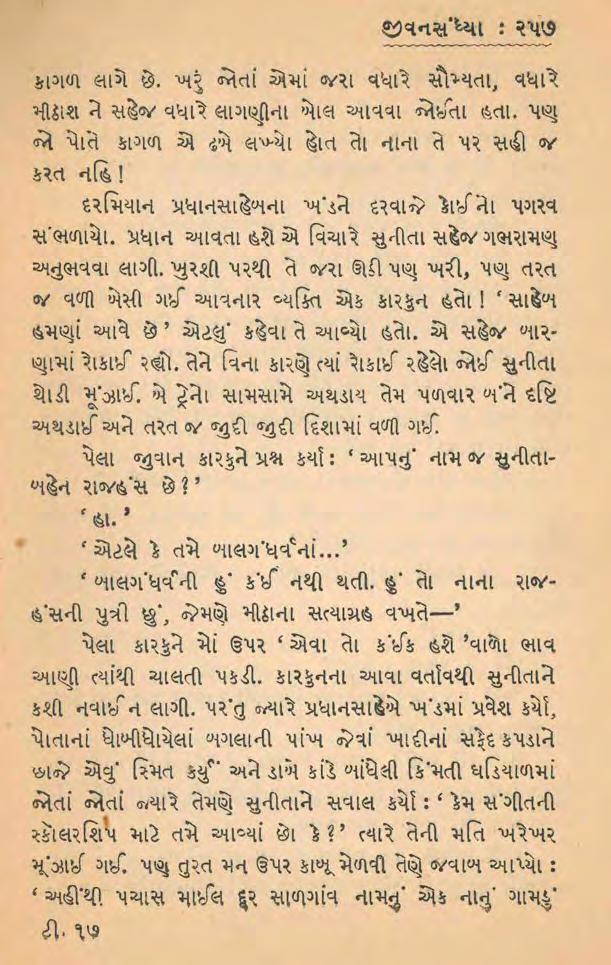 જીવનસંધ્યા : ૨૫૭
કાગળ લાગે છે. ખરું જોતાં એમાં જરા વધારે સૌમ્યતા, વધારે
મીઠાશ ને સહેજ વધારે લાગણીના બોલ આવવા જોઈતા હતા. પણ
જો પોતે કાગળ એ ઢબે લખ્યો હોત તો નાના તે પર સહી જ
કરત નહિ!
દરમિયાન પ્રધાનસાહેબના ખંડને દરવાજે કોઈનો પગરવ
સંભળાયો. પ્રધાન આવતા હશે એ વિચારે સુનીતા સહેજ ગભરામણ
અનુભવવા લાગી. ખુરશી પરથી તે જરા ઊઠી પણ ખરી, પણ તરત
જ વળી બેસી ગઈ આવનાર વ્યક્તિ એક કારકુન હતો! ‘સાહેબ
હમણાં આવે છે’ એટલું કહેવા તે આવ્યો હતો. એ સહેજ બાર-
ણામાં રોકાઈ રહ્યો. તેને વિના કારણે ત્યાં રોકાઈ રહેલો જોઈ સુનીતા
થોડી મૂંઝાઈ. બે ટ્રેનો સામસામે અથડાય તેમ પળવાર બંને દૃષ્ટિ
અથડાઈ અને તરત જ જુદી જુદી દિશામાં વળી ગઈ.
પેલા જુવાન કારકુને પ્રશ્ન કર્યો: ‘આપનું નામ જ સુનીતા-
બહેન રાજહંસ છે?’
‘હા.’
‘એટલે કે તમે બાલગંધર્વનાં...’
‘બાલગંધર્વની હું કંઈ નથી થતી. હું તો નાના રાજ-
હંસની પુત્રી છું, જેમણે મીઠાના સત્યાગ્રહ વખતે—’
પેલા કારકુને મોં ઉપર ‘એવા તો કંઈક હશે’વાળો ભાવ
આણી ત્યાંથી ચાલતી પકડી. કારકુનના આવા વર્તાવથી સુનીતાને
કશી નવાઈ ન લાગી. પરંતુ જ્યારે પ્રધાનસાહેબે ખંડમાં પ્રવેશ કર્યો,
પોતાનાં ધોબીધોયેલાં બગલાની પાંખ જેવાં ખાદીનાં સફેદ કપડાને
છાજે એવું સ્મિત કર્યું અને ડાબે કાંડે બાંધેલી કિંમતી ઘડિયાળમાં
જોતાં જોતાં જ્યારે તેમણે સુનીતાને સવાલ કર્યો: ‘કેમ સંગીતની
સ્કૉલરશિપ માટે તમે આવ્યાં છો કે?’ ત્યારે તેની મતિ ખરેખર
મૂંઝાઈ ગઈ. પણ તુરત મન ઉપર કાબૂ મેળવી તેણે જવાબ આપ્યો:
‘અહીંથી પચાસ માઈલ દૂર સાળગાંવ નામનું એક નાનું ગામડું
ટી. ૧૭